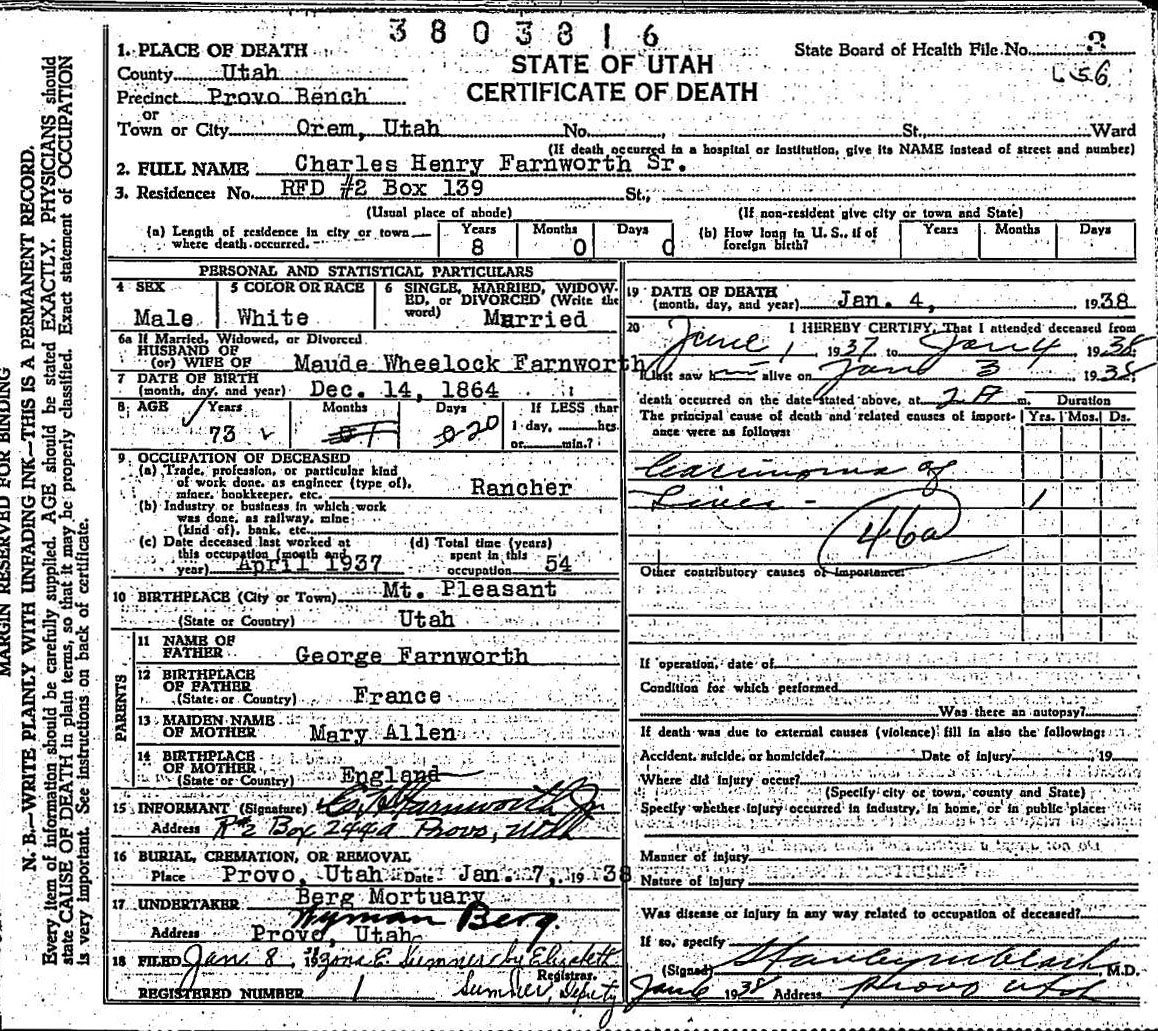 3803816
1. PLACE OF DEATH
State Board of Health File No. 3
County Utah
STATE OF UTAH
L 56
Precinct Provo Bench
CERTIFICATE OF DEATH
or
Town or City Orem, Utah No. , St., Ward
(If death occurred in a hospital or institution, give its NAME instead of street and number)
2. FULL NAME Charles Henry Farnworth Sr.
3. Residence: No. RFD #2 Box 139 St.,
(Usual place of abode) (If non-resident give city or town and State)
(a) Length of residence in city or town where death occurred. Years 8 Months 0 Days 0
(b) How long in U. S., if of foreign birth? Years Months Days
PERSONAL AND STATISTICAL PARTICULARS
4 SEX Male
5 COLOR OR RACE White
6 SINGLE, MARRIED, WIDOWED, or DIVORCED (Write the word) Married
6a If Married, Widowed, or Divorced
HUSBAND OF
(or) WIFE OF Maude Wheelock Farnworth
7 DATE OF BIRTH
(month, day, and year) Dec. 14, 1864
8 AGE Years 73 Months Days 0-20 If LESS than
1 day, hrs.
or min.?
9 OCCUPATION OF DECEASED
(a) Trade, profession, or particular kind
of work done, as engineer (type of),
miner, bookkeeper, etc. Rancher
(b) Industry or business in which work
was done, as railway, mine
(kind of), bank, etc.
(c) Date deceased last worked at
this occupation (month and
year) April 1937
(d) Total time (years)
spent in this
occupation 54
10 BIRTHPLACE (City or Town) Mt. Pleasant
(State or Country) Utah
PARENTS
11 NAME OF
FATHER George Farnworth
12 BIRTHPLACE
OF FATHER
(State or Country) France
13 MAIDEN NAME
OF MOTHER Mary Allen
14 BIRTHPLACE
OF MOTHER
(State or Country) England
15 INFORMANT (Signature) Farnworth Jr
Address R#2 Box 244a Provo, Utah
16 BURIAL, CREMATION, OR REMOVAL
Place Provo, Utah Date Jan. 7, 1938
Berg Mortuary
17 UNDERTAKER Wyman Berg.
Address Provo, Utah
18 FILED Jan. 8, 38 Zona E. Sumner by Elizabeth
Registrar.
REGISTERED NUMBER 1 Sumner, Deputy
19 DATE OF DEATH
(month, day, and year) Jan. 4, 1938
20 I HEREBY CERTIFY, That I attended deceased from
June 1 1937 to Jan 4 1938
I last saw h alive on Jan 3 1938,
death occurred on the date stated above, at m. Duration
The principal cause of death and related causes of importance were as follows: Yrs. Mos. Ds.
Carcinoma of
Liver - 1
46a
Other contributory causes of importance:
If operation, date of
Condition for which performed
Was there an autopsy?
If death was due to external causes (violence) fill in also the following:
Accident, suicide, or homicide? Date of injury , 19
Where did injury occur?
(Specify city or town, county and State)
Specify whether injury occurred in industry, in home, or in public place:
Manner of injury
Nature of injury
Was disease or injury in any way related to occupation of deceased?
If so, specify
(Signed) Stanley M Clark M.D.
Jan 6 1938 Address Provo Utah
MARGIN RESERVED FOR BINDING
N. B.—WRITE PLAINLY WITH UNFADING INK—THIS IS A PERMANENT RECORD.
Every item of information should be carefully supplied. AGE should be stated EXACTLY. PHYSICIANS should
state CAUSE OF DEATH in plain terms, so that it may be properly classified. Exact statement of OCCUPATION
is very important. See instructions on back of certificate.